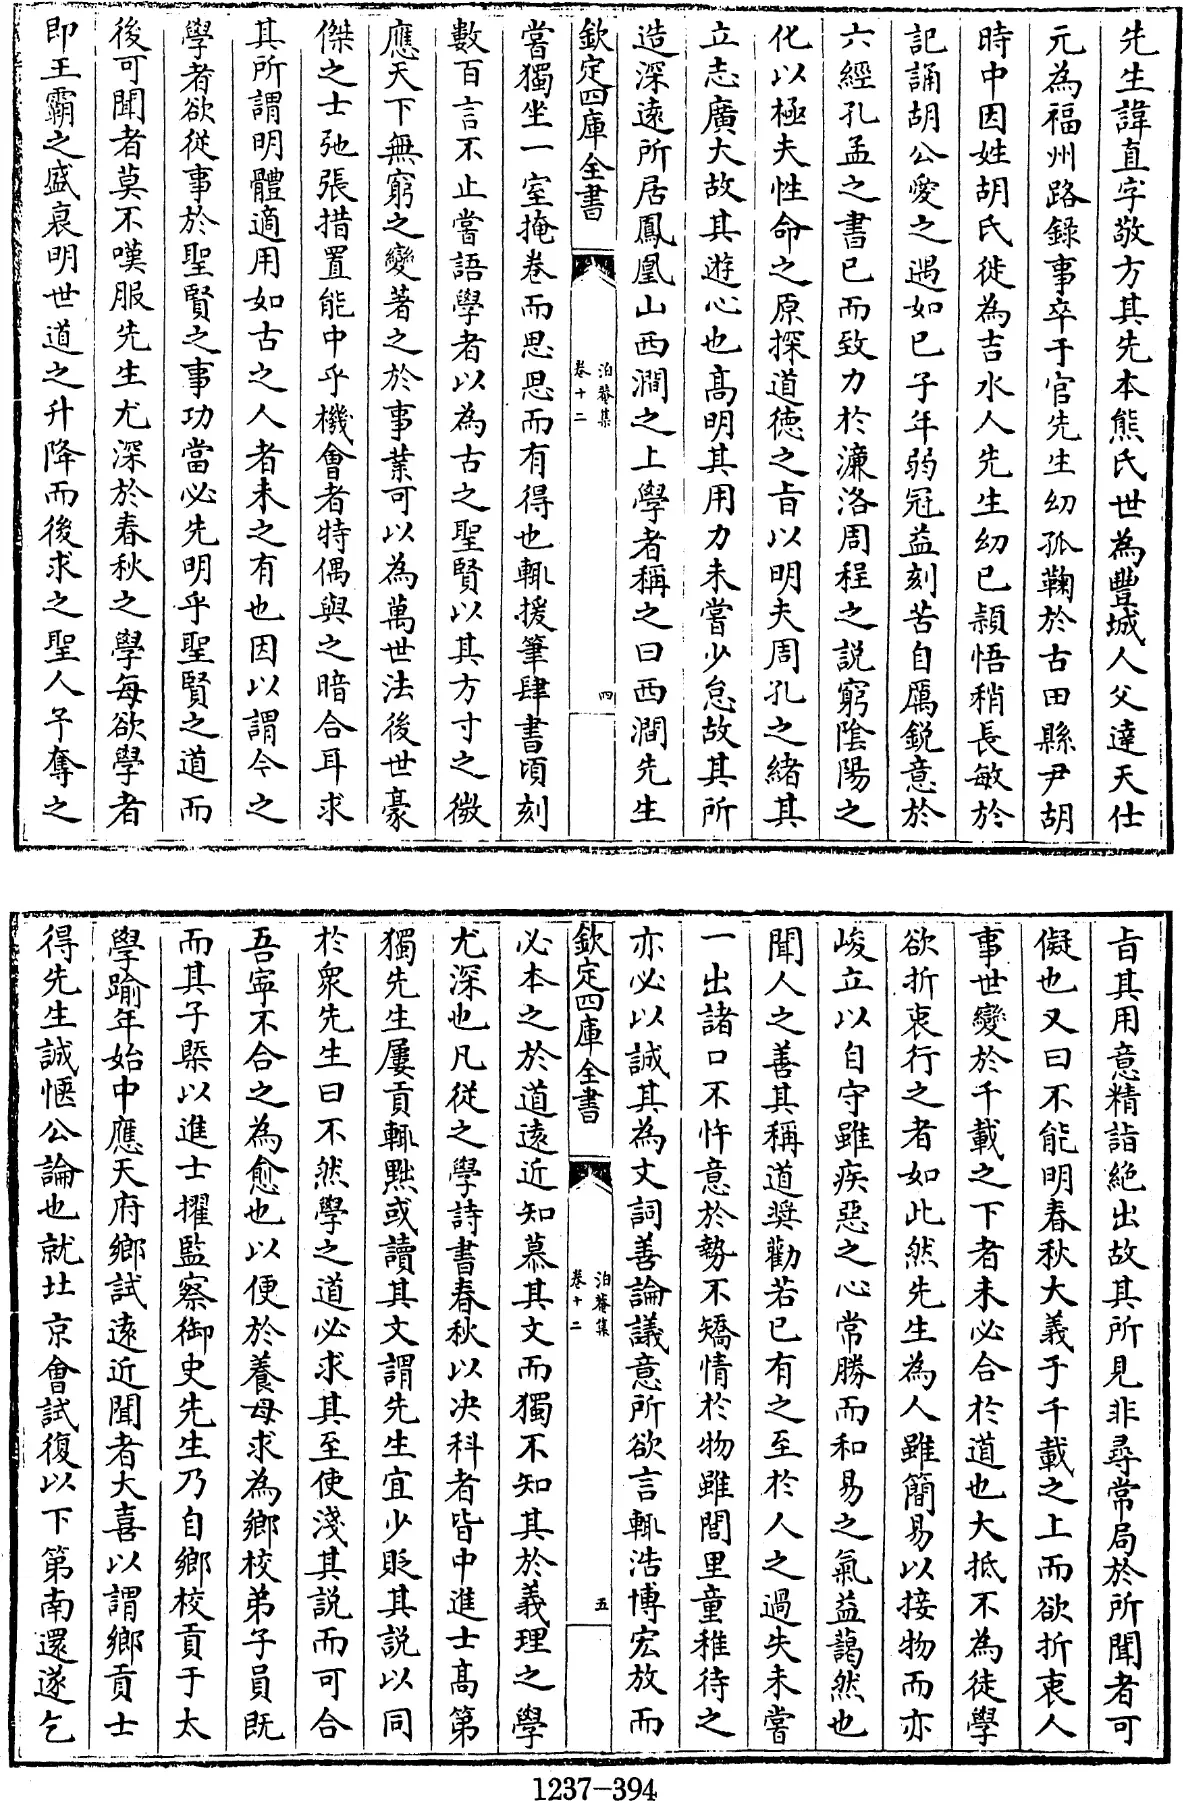 先生諱直字敬方其先本熊氏世為豐城人父達天仕
元為福州路錄事卒于官先生幼孤鞠於古田縣尹胡
時中因姓胡氏徙為吉水人先生幼已頴悟稍長敏於
記誦胡公愛之遇如已子年弱冠益刻苦自厲鋭意於
六經孔孟之書已而致力於濂洛周程之説窮隂陽之
化以極夫性命之原探道徳之㫖以明夫周孔之緒其
立志廣大故其遊心也髙明其用力未嘗少怠故其所
造深遠所居鳳凰山西澗之上學者稱之曰西澗先生
欽定四庫全書
泊菴集
卷十二
四
嘗獨坐一室掩卷而思思而有得也輒援筆肆書頃刻
數百言不止嘗語學者以為古之聖賢以其方寸之微
應天下無窮之變著之於事業可以為萬世法後世豪
傑之士弛張措置能中乎機會者特偶與之暗合耳求
其所謂明體適用如古之人者未之有也因以謂今之
學者欲從事於聖賢之事功當必先明乎聖賢之道而
後可聞者莫不嘆服先生尤深於春秋之學每欲學者
即王霸之盛衰明世道之升降而後求之聖人予奪之
㫖其用意精詣絶出故其所見非尋常局於所聞者可
儗也又曰不能明春秋大義于千載之上而欲折衷人
事世變於千載之下者未必合於道也大抵不為徒學
欲折衷行之者如此然先生為人雖簡易以接物而亦
峻立以自守雖疾惡之心常勝而和易之氣益藹然也
聞人之善其稱道奬勸若已有之至於人之過失未嘗
一出諸口不忤意於勢不矯情於物雖閭里童稚待之
亦必以誠其為文詞善論議意所欲言輒浩博宏放而
欽定四庫全書
泊菴集
卷十二
五
必本之於道遠近知慕其文而獨不知其於義理之學
尤深也凡從之學詩書春秋以決科者皆中進士髙第
獨先生屢貢輒黜或讀其文謂先生宜少貶其説以同
於衆先生曰不然學之道必求其至使淺其説而可合
吾寧不合之為愈也以便於養母求為鄉校弟子員既
而其子槩以進士擢監察御史先生乃自鄉校貢于太
學踰年始中應天府鄉試遠近聞者大喜以謂鄉貢士
得先生誠愜公論也就北京會試復以下第南還遂乞
1237-394